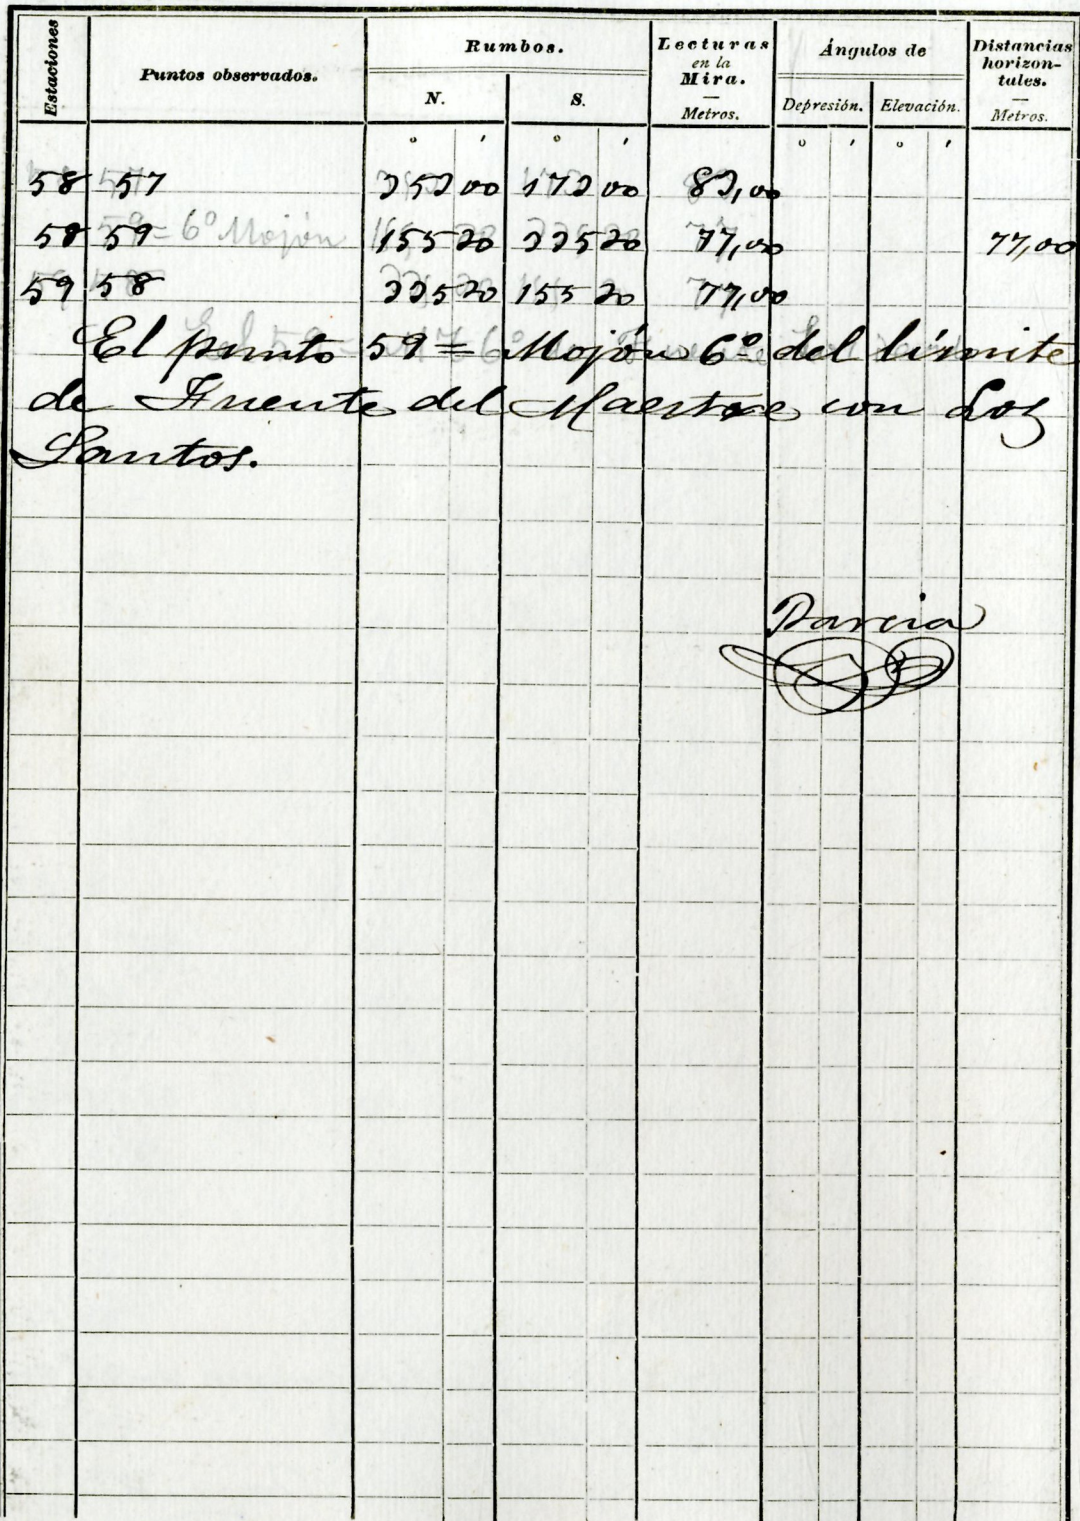 Estaciones
Puntos observados.
Rumbos.
N.
S.
Lecturas
en la
Mira.
Metros.
Ángulos de
Depresión.
Elevación.
Distancias
horizon-
tales.
Metros.
° ' ° ' ° ' ° '
58 57 353 00 173 00 83,00
58 59 = 6º Mojón 155 30 335 30 77,00 77,00
59 58 335 30 155 30 77,00
El punto 59 = Mojón 6º del límite
de Fuente del Maestre con Los
Santos.